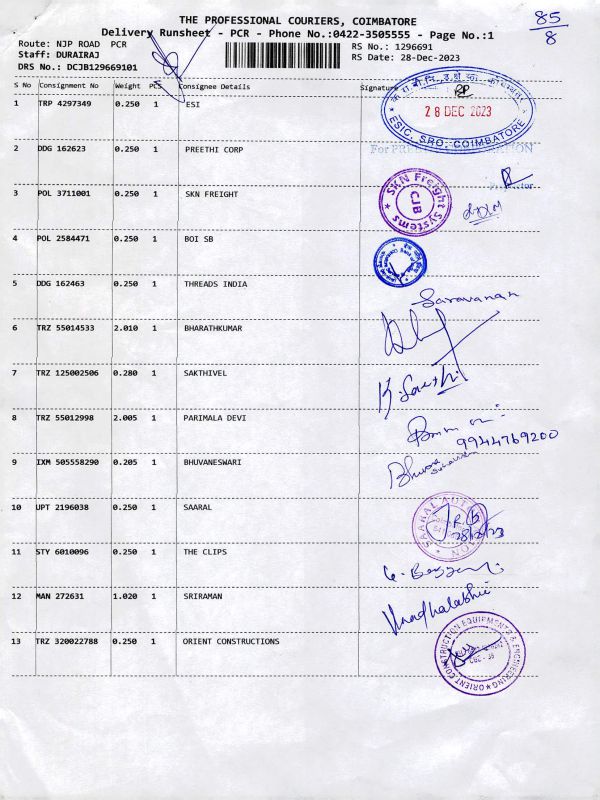 THE PROFESSIONAL COURIERS, COIMBATORE
85/8
Delivery Runsheet - PCR - Phone No.:0422-3505555 - Page No.:1
Route: NJP ROAD PCR
RS No.: 1296691
Staff: DURAIRAJ
RS Date: 28-Dec-2023
DRS No.: DCJB129669101
S No Consignment No Weight PCS Consignee Details Signature
1 TRP 4297349 0.250 1 ESI
28 DEC 2023
ESIC, SRO, COIMBATORE
2 DDG 162623 0.250 1 PREETHI CORP
3 POL 3711001 0.250 1 SKN FREIGHT
SKN Freight Systems
CJB
4 POL 2584471 0.250 1 BOI SB
5 DDG 162463 0.250 1 THREADS INDIA
Saravanan
6 TRZ 55014533 2.010 1 BHARATHKUMAR
7 TRZ 125002506 0.280 1 SAKTHIVEL
8 TRZ 55012998 2.005 1 PARIMALA DEVI
9944769200
9 IXM 505558290 0.205 1 BHUVANESWARI
10 UPT 2196038 0.250 1 SAARAL
28/12/23
11 STY 6010096 0.250 1 THE CLIPS
12 MAN 272631 1.020 1 SRIRAMAN
13 TRZ 320022788 0.250 1 ORIENT CONSTRUCTIONS
ORIENT CONSTRUCTION EQUIPMENTS & ENGINEERING